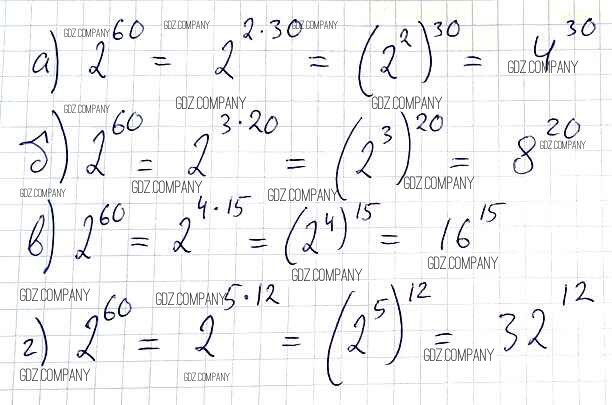 а) 2^60 = 2^(2·30) = (2^2)^30 = 4^30
б) 2^60 = 2^(3·20) = (2^3)^20 = 8^20
в) 2^60 = 2^(4·15) = (2^4)^15 = 16^15
г) 2^60 = 2^(5·12) = (2^5)^12 = 32^12
GDZ.COMPANY GDZ.COMPANY GDZ.COMPANY
GDZ.COMPANY
GDZ.COMPANY GDZ.COMPANY
GDZ.COMPANY
GDZ.COMPANY
GDZ.COMPANY GDZ.COMPANY GDZ.COMPANY GDZ.COMPANY
GDZ.COMPANY GDZ.COMPANY
GDZ.COMPANY GDZ.COMPANY
GDZ.COMPANY
GDZ.COMPANY GDZ.COMPANY